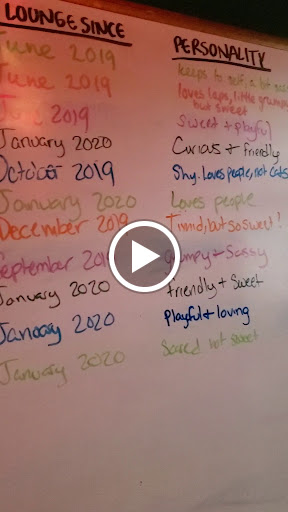 LOUNGE SINCE PERSONALITY
June 2019 keeps to self, a bit
June 2019 loves laps, little grumpy
but sweet
2019 Sweet + playful
January 2020 Curious + friendly
October 2019 Shy. Loves people, not cats
January 2020 Loves people
December 2019 Timid, but so sweet!
September grumpy + Sassy
January 2020 friendly + Sweet
January 2020 Playful + loving
January 2020 Scared not sweet